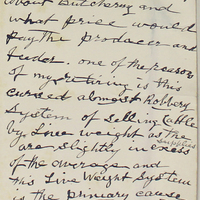 about Butchering and
what price would
pay the producer and
feeder. one of the reason
of my retiring is this
cursed almost Robbery
System of Selling Cattle
by Live weight as the
supplies
are slightly in excess
of the average and
this Live Weight System
is the primary cause